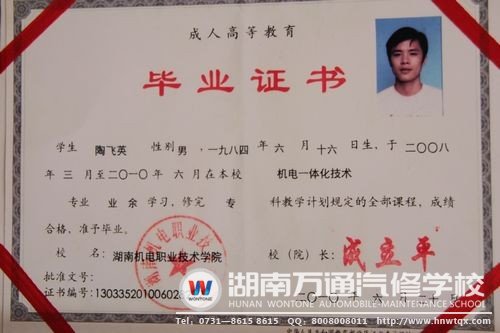 成人高等教育
毕业证书
学生 陶飞英 性别 男,一九八四年 六 月 十六 日生,于 二〇〇八
年 三 月至 二〇一〇 年 六 月在本校 机电一体化技术
专业 业 余 学习,修完 专 科教学计划规定的全部课程,成绩
合格,准予毕业。
校 名: 湖南机电职业技术学院 校(院)长: 成立平
批准文号:
证书编号:1303352010060
湖南机电职业技术
WONTONE
湖南万通汽修学校
HUNAN WONTONE AUTOMOBILE MAINTENANCE SCHOOL
Tel: 0731—8615 8615 QQ: 8008008011 http://www.hnwtqx.com